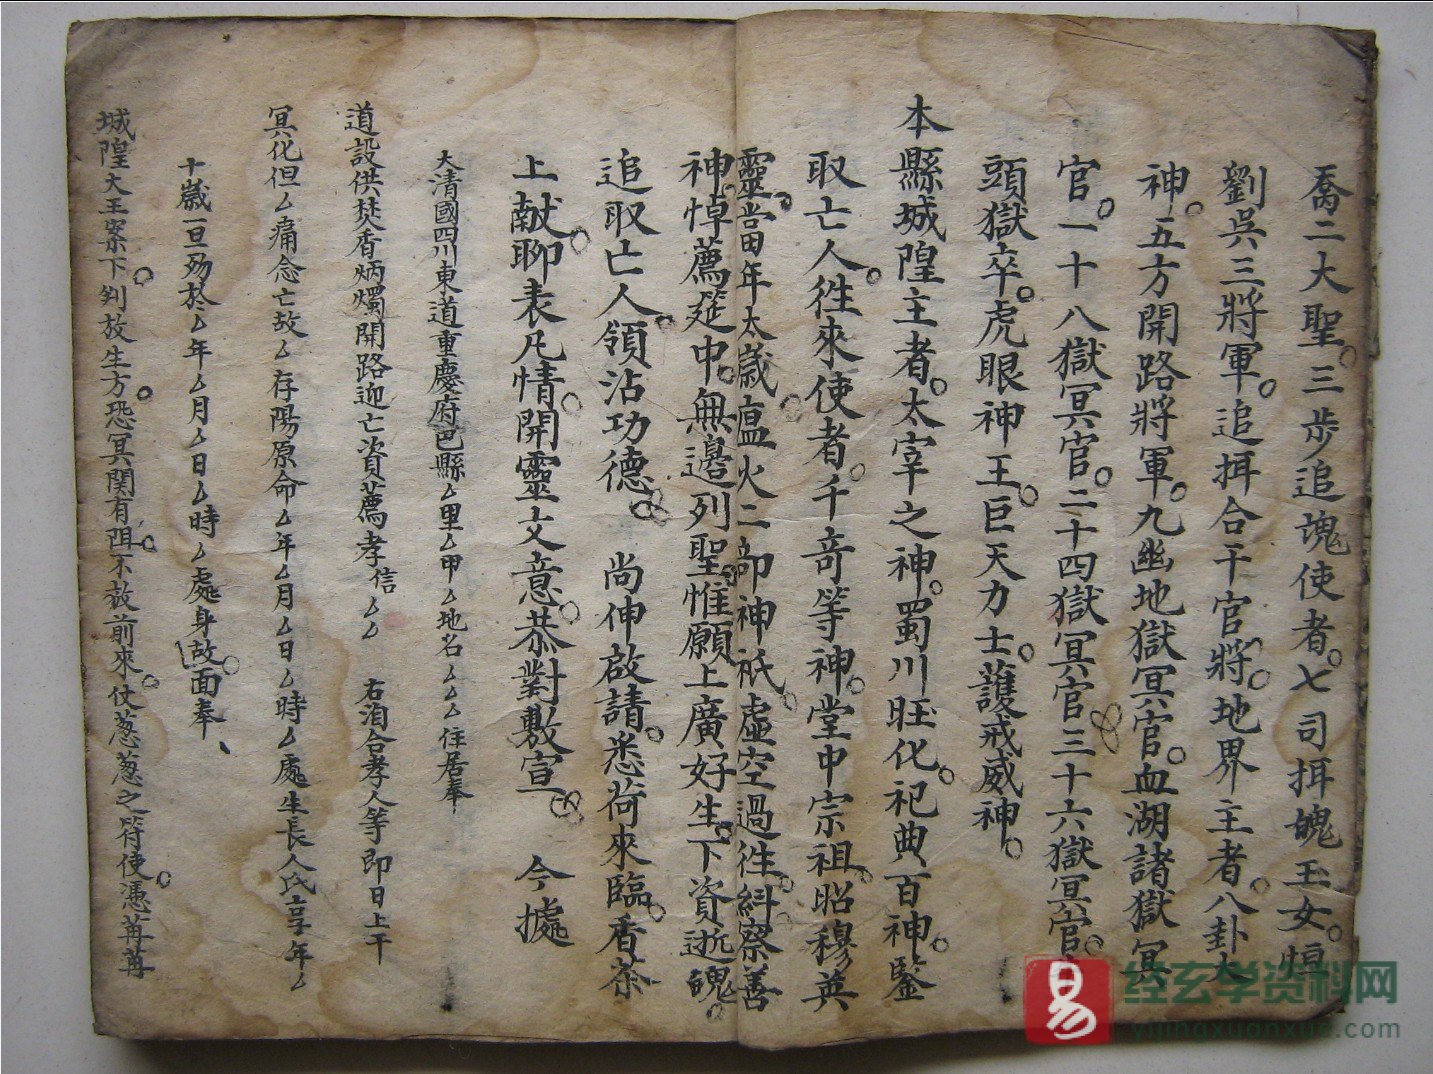 喬二大聖。三步追魂使者。七司揖魄玉女。
劉吳三將軍。追揖合干官將。地界主者。八卦大
神。五方開路將軍。九幽地獄冥官。血湖諸獄冥
官。一十八獄冥官。二十四獄冥官三十六獄冥官。
頭獄卒。虎眼神王。巨天力士。護戒威神。
本縣城隍主者。太宰之神。蜀川旺化。祀典百神。鑒
取亡人。徃來使者。千奇等神。堂中宗祖。昭穆英
靈。當年太歲瘟火二部神祇。虛空過徃。糾察善
神。悼薦筵中。無邊列聖。惟願上廣好生。下資逝魄。
追取亡人。領沾功德。尚伸啟請。悉荷來臨。香茶
上献。聊表凡情。開靈文意。恭對敷宣。今據
大清國四川東道重慶府巴縣厶里厶甲厶地名厶厶厶住居奉
道設供焚香炳燭開路迎亡資薦孝信厶厶 右洎合孝人等即日上干
冥化但厶痛念亡故厶存陽原命厶年厶月厶日厶時厶處生長人氏享年厶
十歲一旦殁於厶年厶月厶日厶時厶處身故。面奉、
城隍大王案下。判放生方。恐冥関有阻。不放前來。仗葱葱之符使。憑苒苒
易
经玄学资料网
yijingxuanxue.com